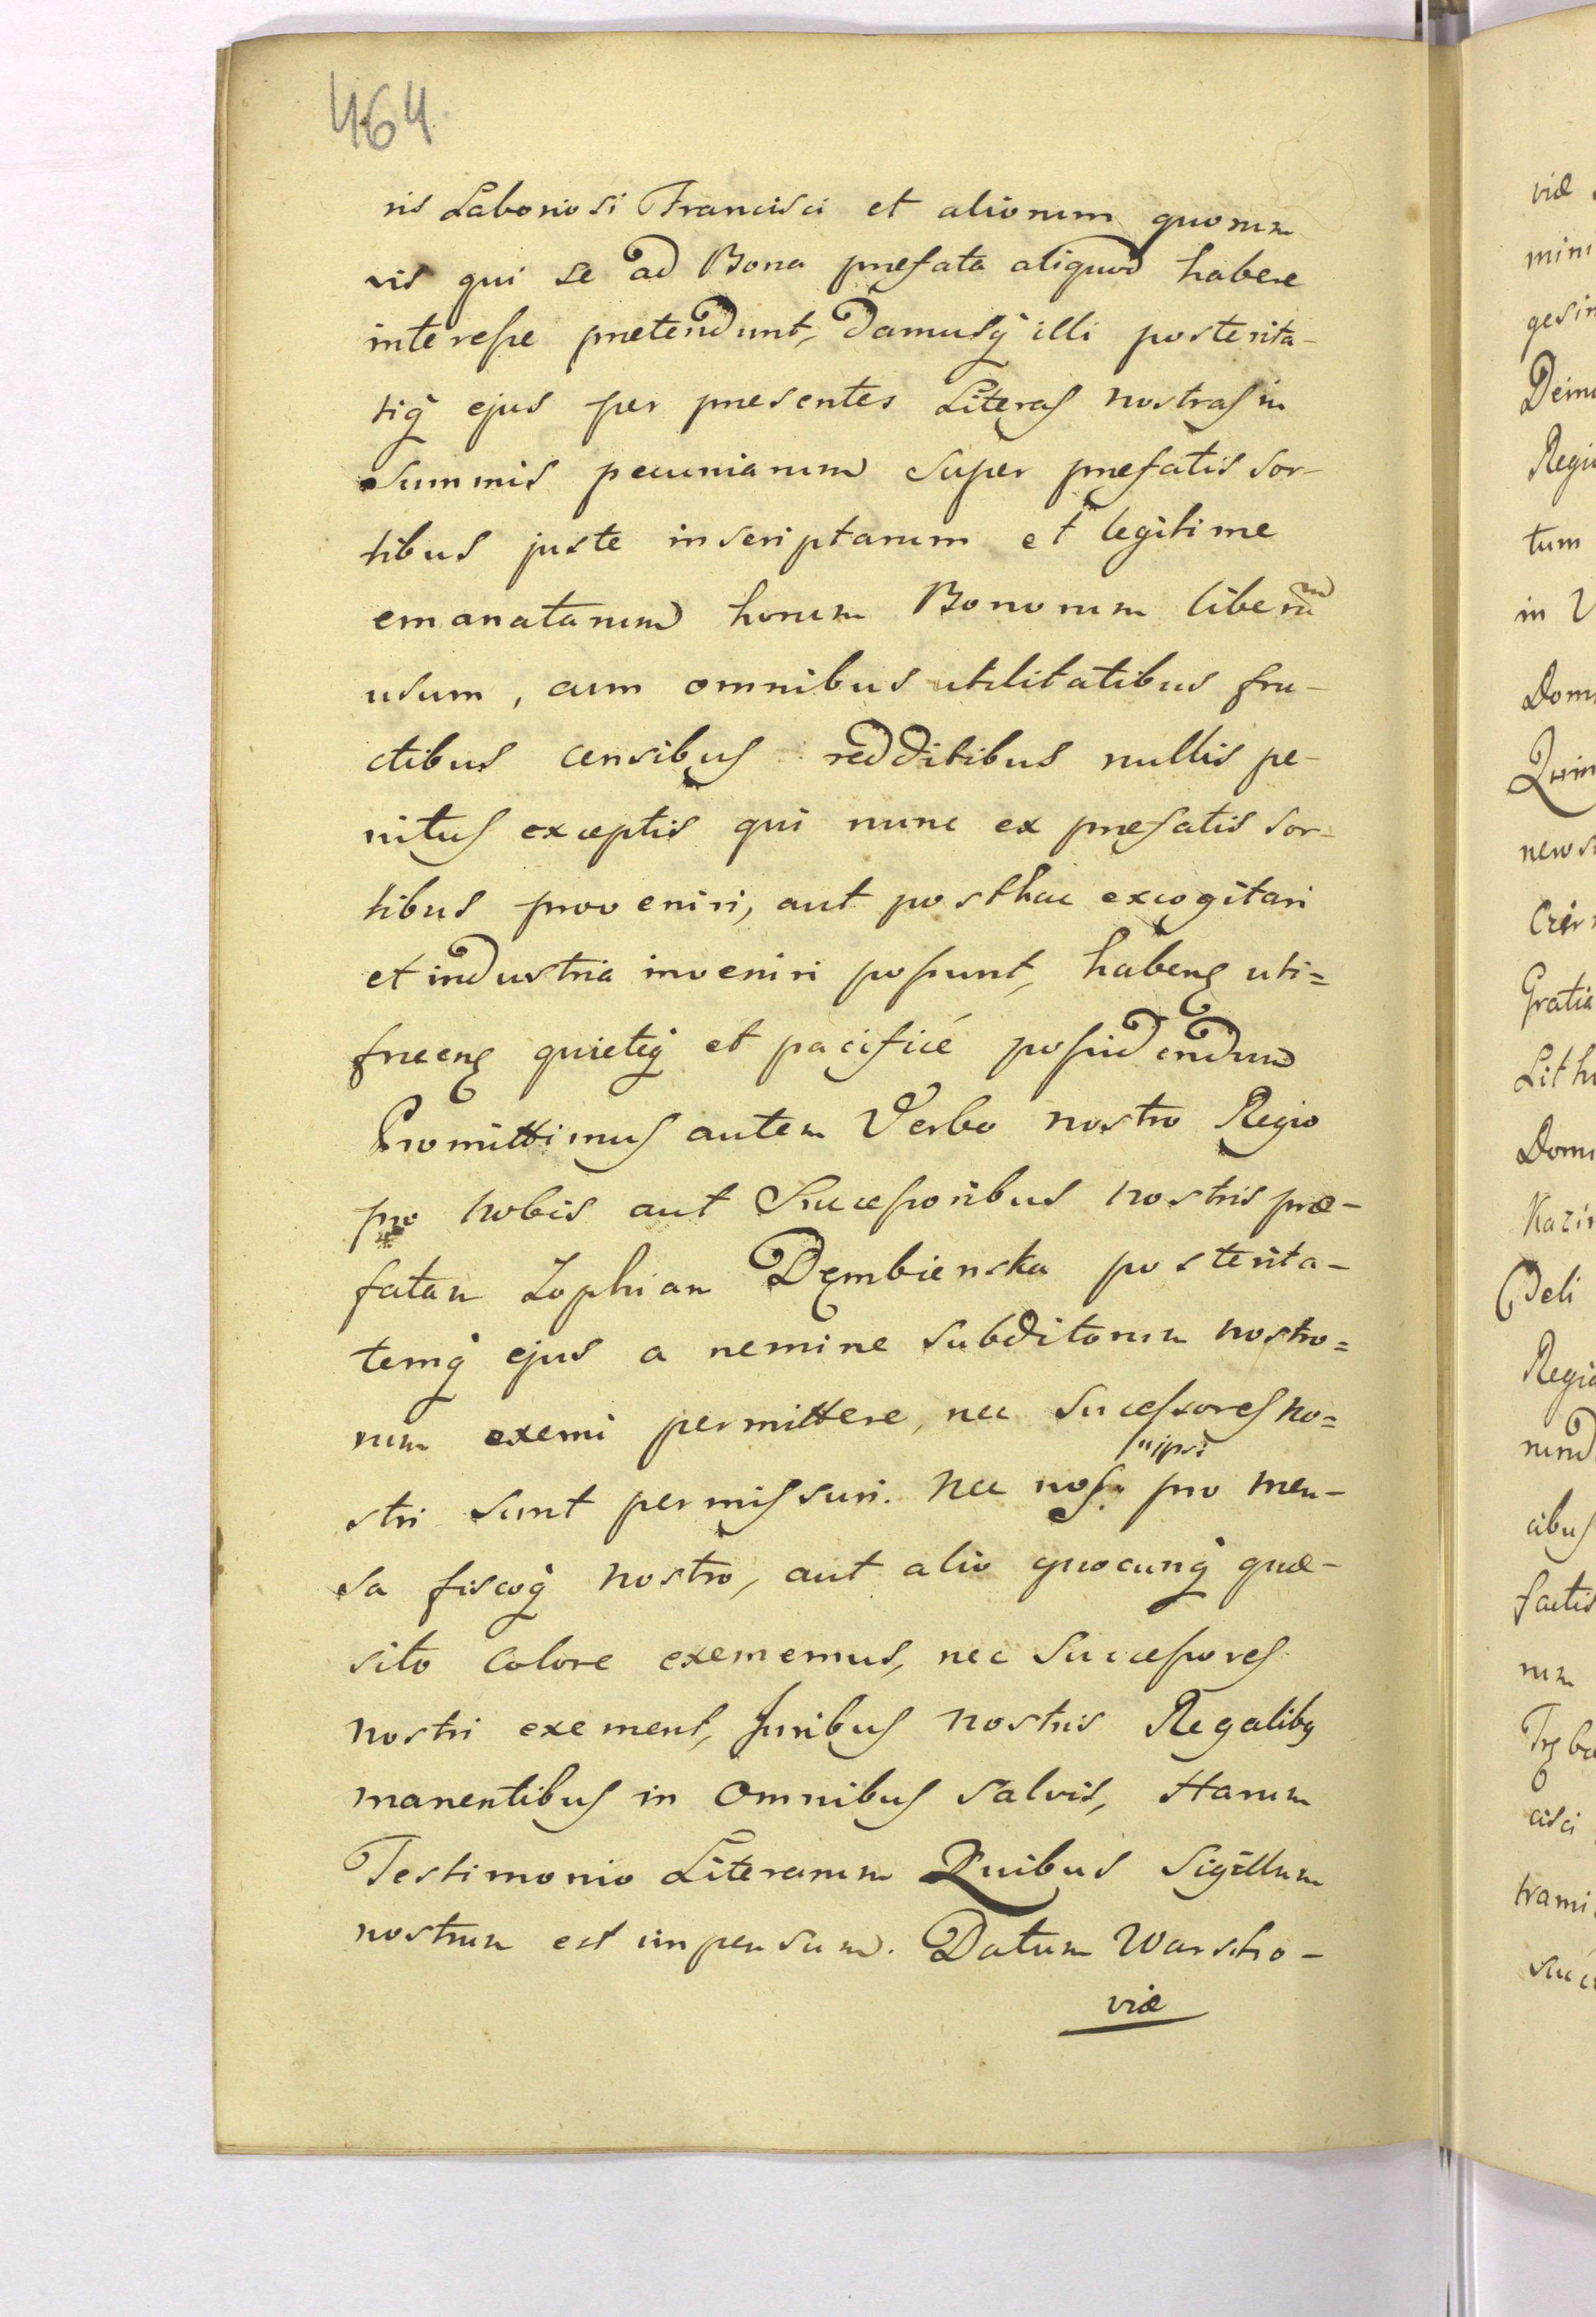 464
ris Laboriosi Francisci et aliorum quorum
vis qui se ad Bona prefata aliquod habere
interesse pretendunt, Damusq̃ illi posterita-
tiq̃ ejus per presentes Literas nostras in
Summis pecuniarum super prefatis sor-
tibus juste inscriptarum et legitime
emanatarum horum Bonorum liberũ
usum, cum omnibus utilitatibus fru-
ctibus censibus redditibus nullis pe-
nitus exceptis qui nunc ex prefatis sor-
tibus proveniri, aut posthac excogitari
et industria inveniri possunt, habenḍ uti=
frueenḍ quieteq̃ et pacificé possidendum
Promittimus autem Verbo nostro Regio
pro nobis aut Successoribus nostris præ-
fatam Zophiam Dembienska posterita-
temq̃ ejus a nemine subditorum nostro=
rum exemi permittere, nec Successores no=
stri sunt permissuri. Nec nos ipsi pro men-
sa fiscoq̃ nostro, aut alio quocunq̃ quæ-
sito colore exememus, nec Successores
nostri exement, Juribus nostris Regalibꝫ
manentibus in omnibus salvis, Harum
Testimonio Literarum Quibus Sigillum
nostrum est impensum. Datum Warscho-
viæ
viæ
mini
Regi
tum
in
Dom
Gratia
Lith
Dom
deli
Regi
cibus
factis
rum
cisci
trami